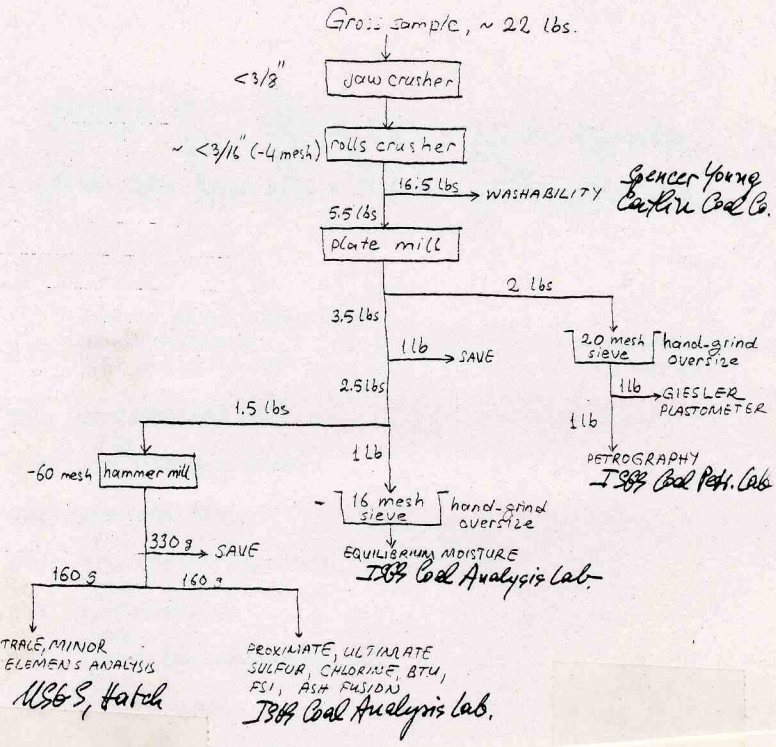 Gross sample, ~ 22 lbs.
<3/8"
jaw crusher
~ <3/16" (-4 mesh)
rolls crusher
16.5 lbs
WASHABILITY
Spencer Young
Catlin Coal Co.
5.5 lbs
plate mill
2 lbs
3.5 lbs
1 lb
SAVE
20 mesh
sieve
hand-grind
oversize
2.5 lbs
1 lb
GIESLER
PLASTOMETER
1 lb
1.5 lbs
1 lb
PETROGRAPHY
ISGS Coal Petr. Lab
-60 mesh
hammer mill
16 mesh
sieve
hand-grind
oversize
330 g
SAVE
EQUILIBRIUM MOISTURE
ISGS Coal Analysis Lab.
160 g
160 g
TRACE, MINOR
ELEMENS ANALYSIS
USGS, Hatch
PROXIMATE, ULTIMATE
SULFUR, CHLORINE, BTU,
FSI, ASH FUSION
ISGS Coal Analysis Lab.